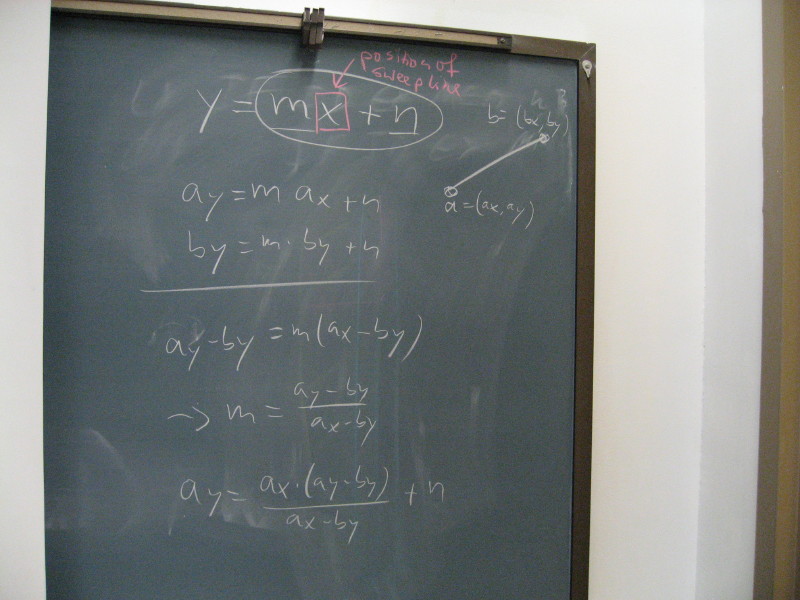 position of
sweepline
y = mx + n
b = (bx, by)
a = (ax, ay)
ay = m ax + n
by = m · by + n
ay - by = m(ax - by)
→ m = \frac{ay - by}{ax - by}
ay = \frac{ax · (ay - by)}{ax - by} + n